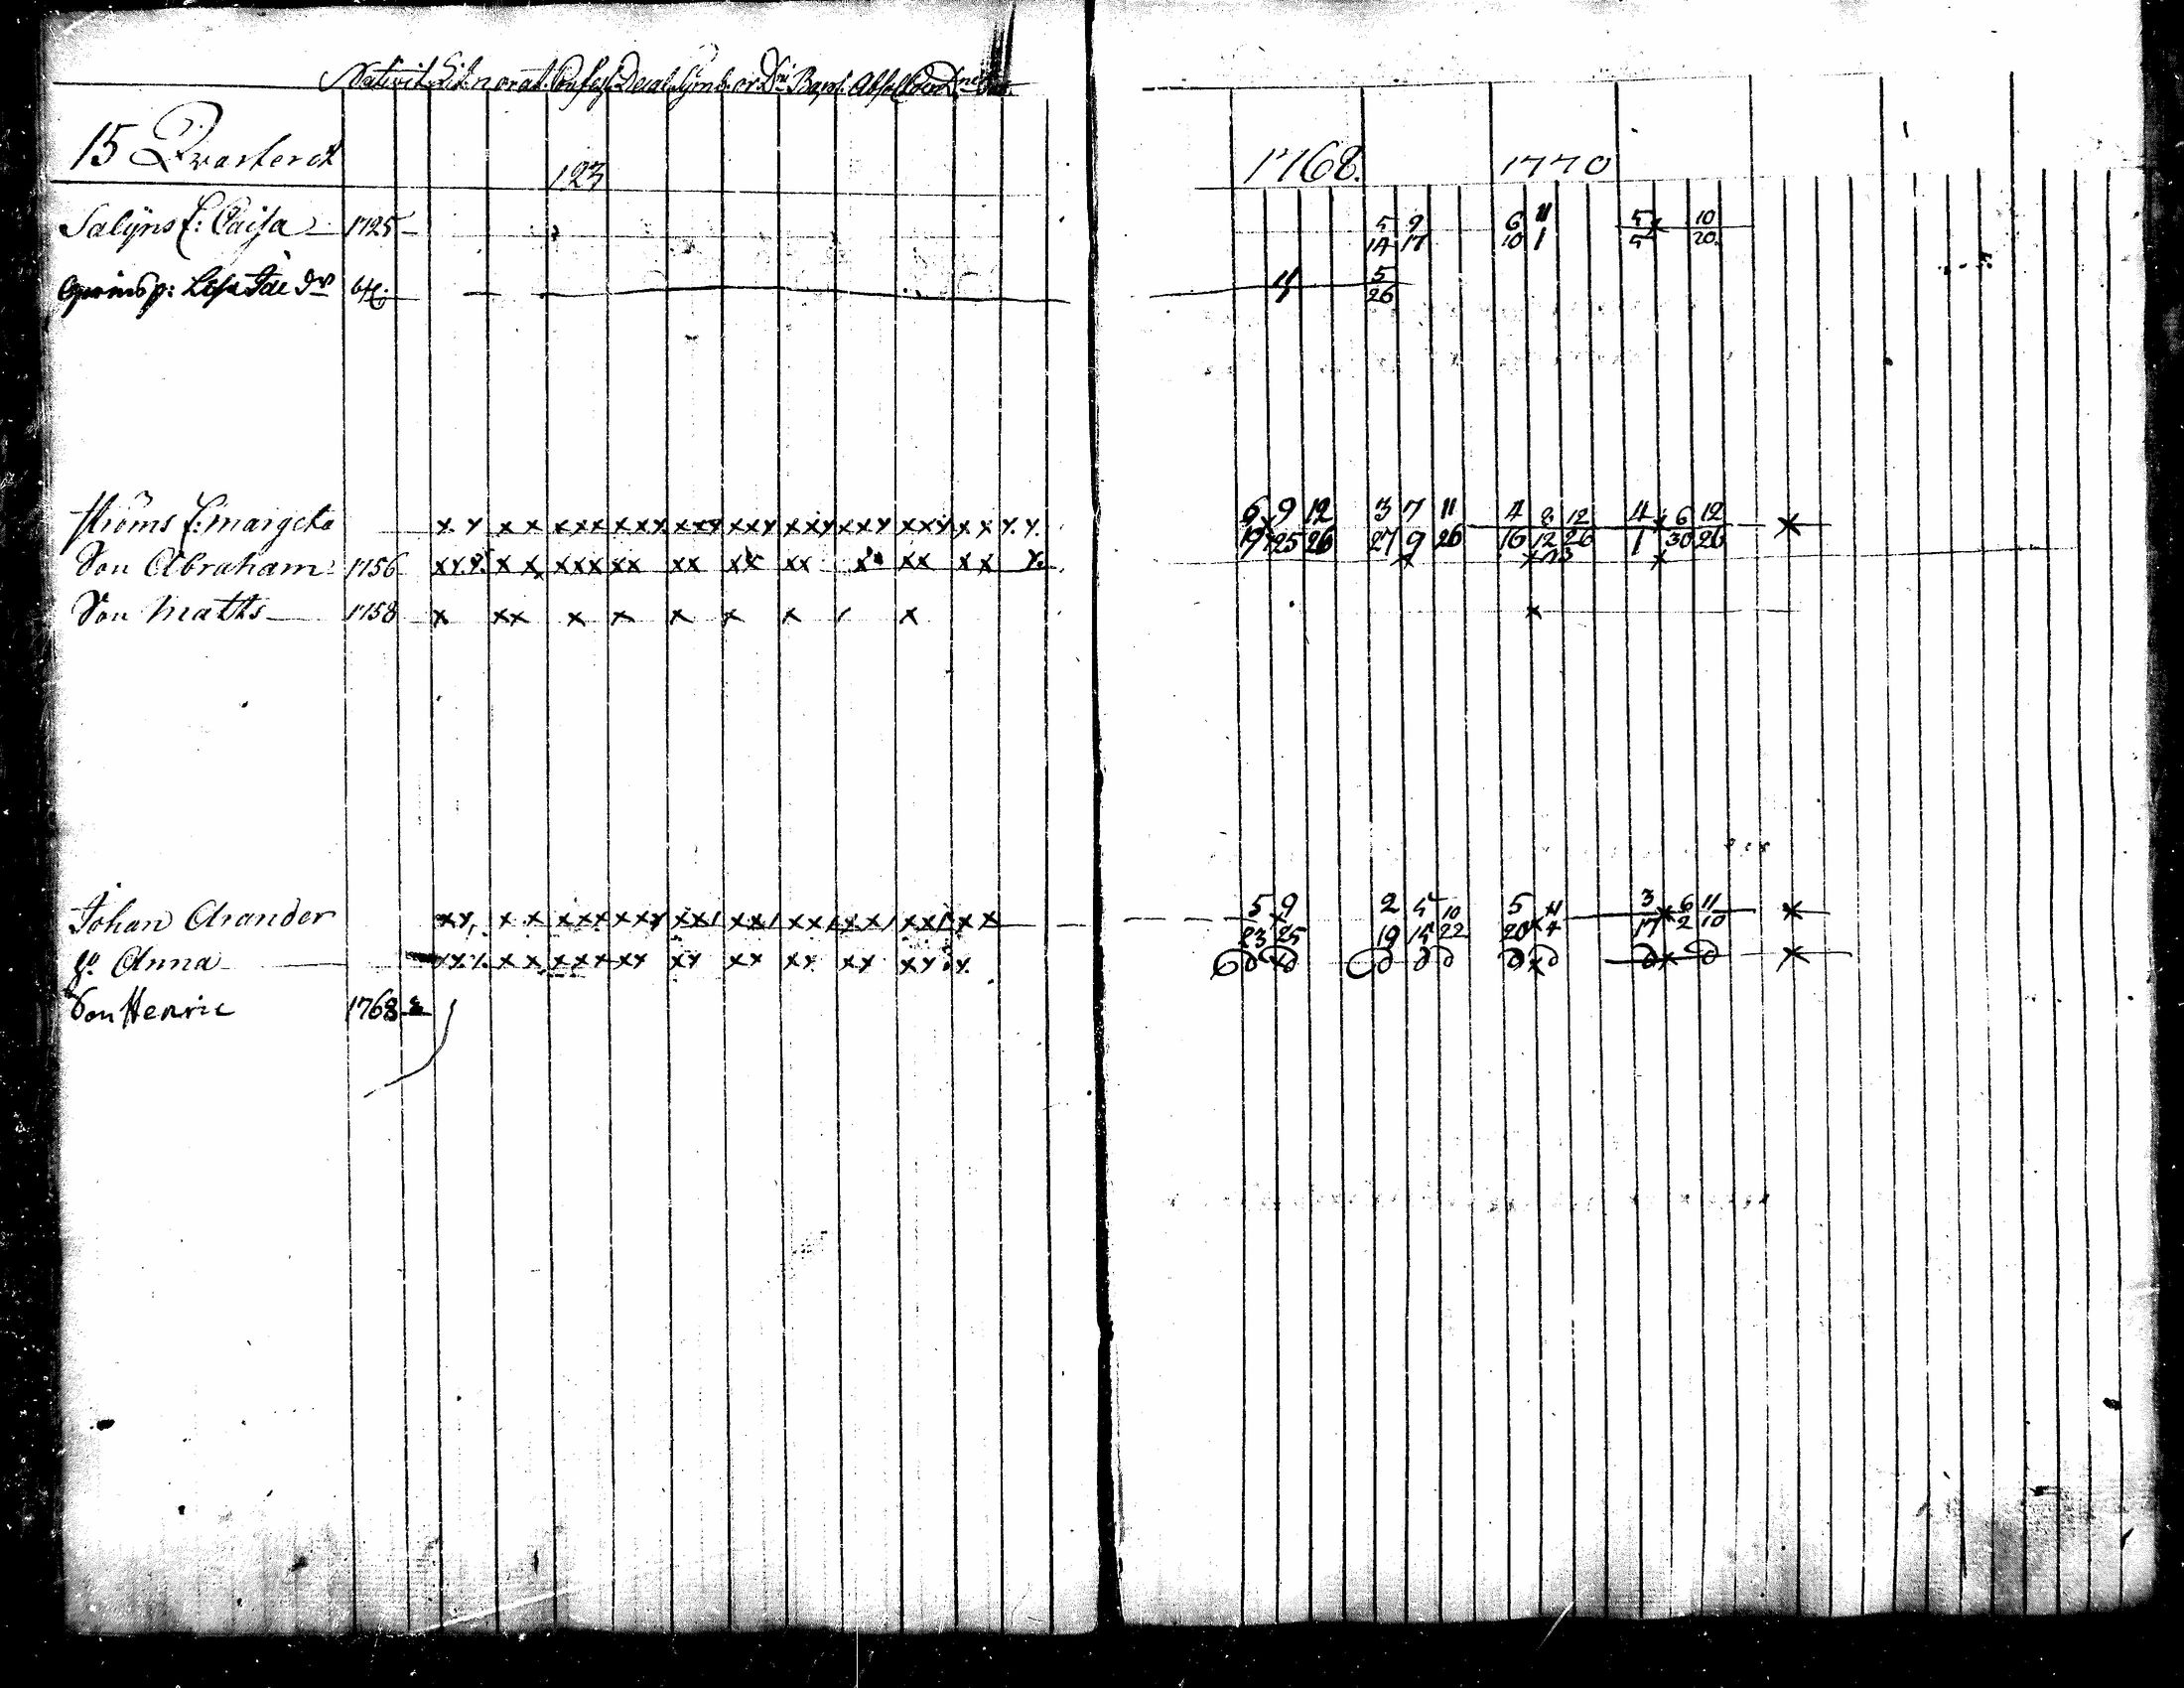 Nativit. Lit. n orat. Confess. Decal. Symb. or. Dni Bapt. Absol.
15 Qvarteret 123 1768. 1770
Salijns E: Caisa 1725 5 9 6 11 5 x 10
14 17 10 1 5 20
Lisa 11 5
26
Ströms E: Margeta x. x x x x x x x x x. x x x x x x x x x x x x x x x x x x x. x. 6 9 12 3 7 11 4 8 12 4 x 6 12 x
19 x 25 26 27 9 26 16 12 26 1 30 26
Son Abraham 1756 x x. x. x x x x x x x x x x x x x x x x x x x x. x x x
Son Maths 1758 x x x x x x x x x x
Johan Arander x x, x x x x x x x x x x x x x x x x x x x x 5 x 9 2 5 10 5 11 3 x 6 11 x
23 25 19 15 22 20 x 4 17 2 10
h. Anna x x. x x x x x x x x x x x x x x x x x. d x d d d d d x d d x d x
Son Henric 1768